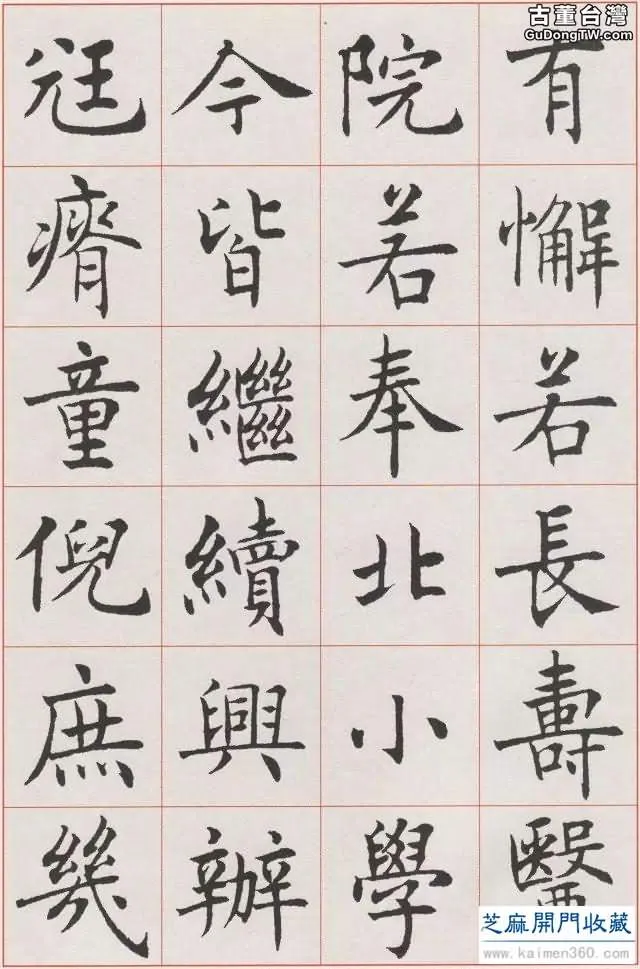 古董台灣
GuDongTW.com
有懈若長壽醫
院若奉北小學
今皆繼續興辦
尫瘠童倪庶幾
芝麻開門收藏
www.kaimen360.com